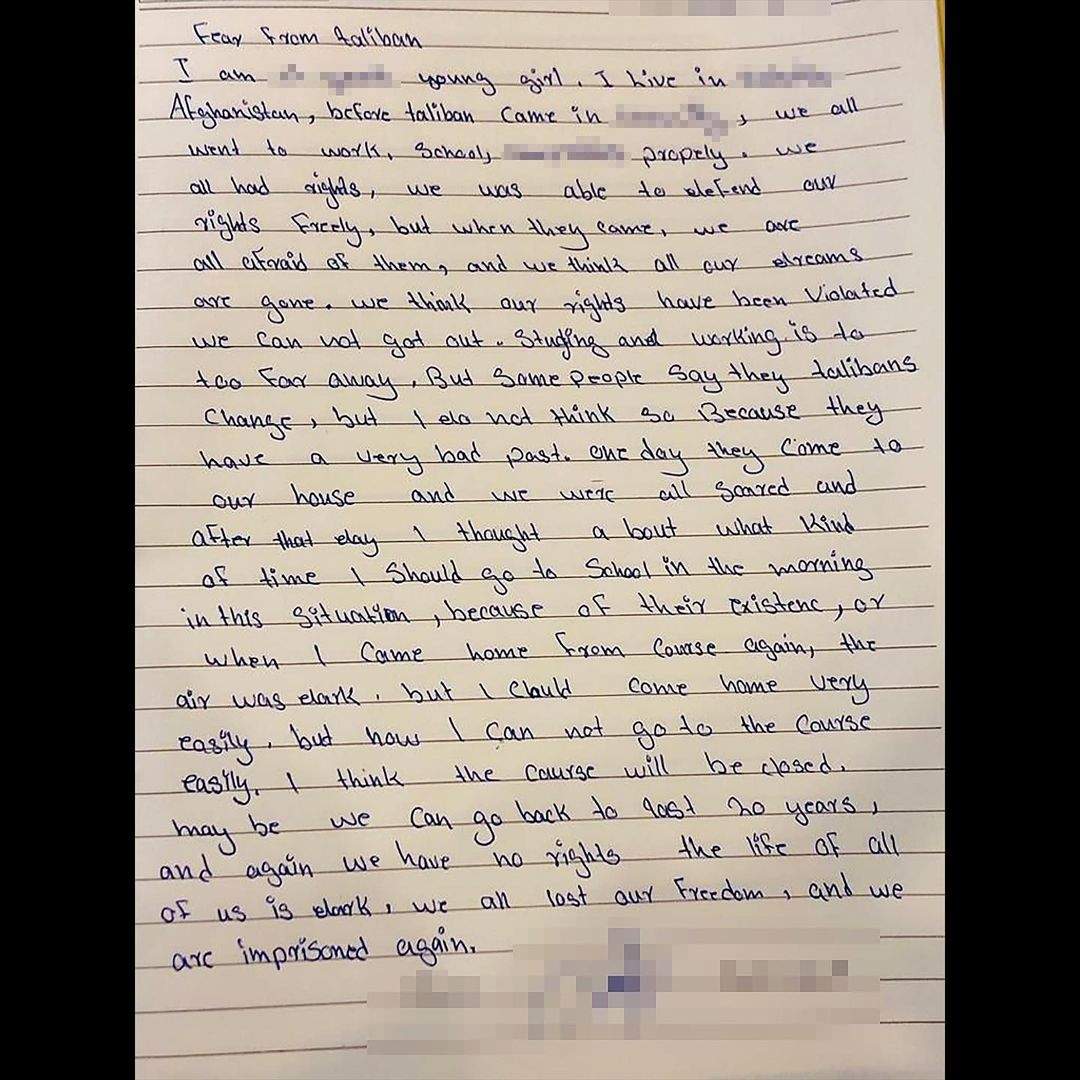 Fear from taliban
I am young girl. I live in
Afghanistan, before taliban came in , we all
went to work, School, propely. we
all had rights, we was able to defend our
rights freely, but when they came, we are
all afraid of them, and we think all our dreams
are gone. we think our rights have been Violated
we can not got out. Studing and working is to
too far away. But Some people Say they talibans
Change, but I do not think so Because they
have a very bad past. one day they Come to
our house and we were all Scared and
after that day I thought a bout what Kind
of time I Should go to School in the morning
in this Situation, because of their existenc, or
when I Came home from Course again, the
air was dark. but I Chuld come home very
easily. but now I can not go to the Course
eastly. I think the Caurse will be closed.
may be we can go back to last 20 years,
and again we have no rights the life of all
of us is dark, we all lost our Freedom, and we
are imprisoned again.